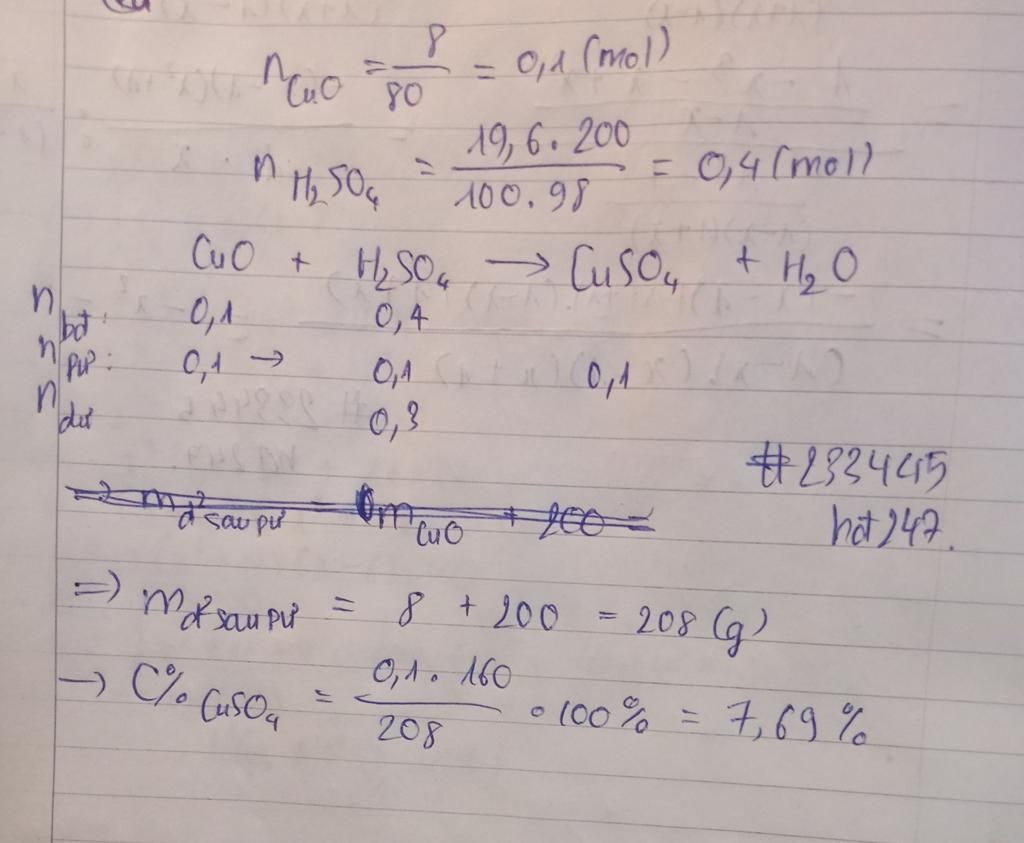 n CuO = 8/80 = 0,1 (mol)
n H₂SO₄ = 19,6 . 200 / 100 . 98 = 0,4 (mol)
CuO + H₂SO₄ → CuSO₄ + H₂O
n bđ: 0,1 0,4
n pứ: 0,1 → 0,1 0,1
n dư 0,3
#233445
hđ247.
⇒ m d² sau pứ = m CuO + 200 =
⇒ m d² sau pứ = 8 + 200 = 208 (g)
→ C% CuSO₄ = 0,1 . 160 / 208 . 100% = 7,69 %